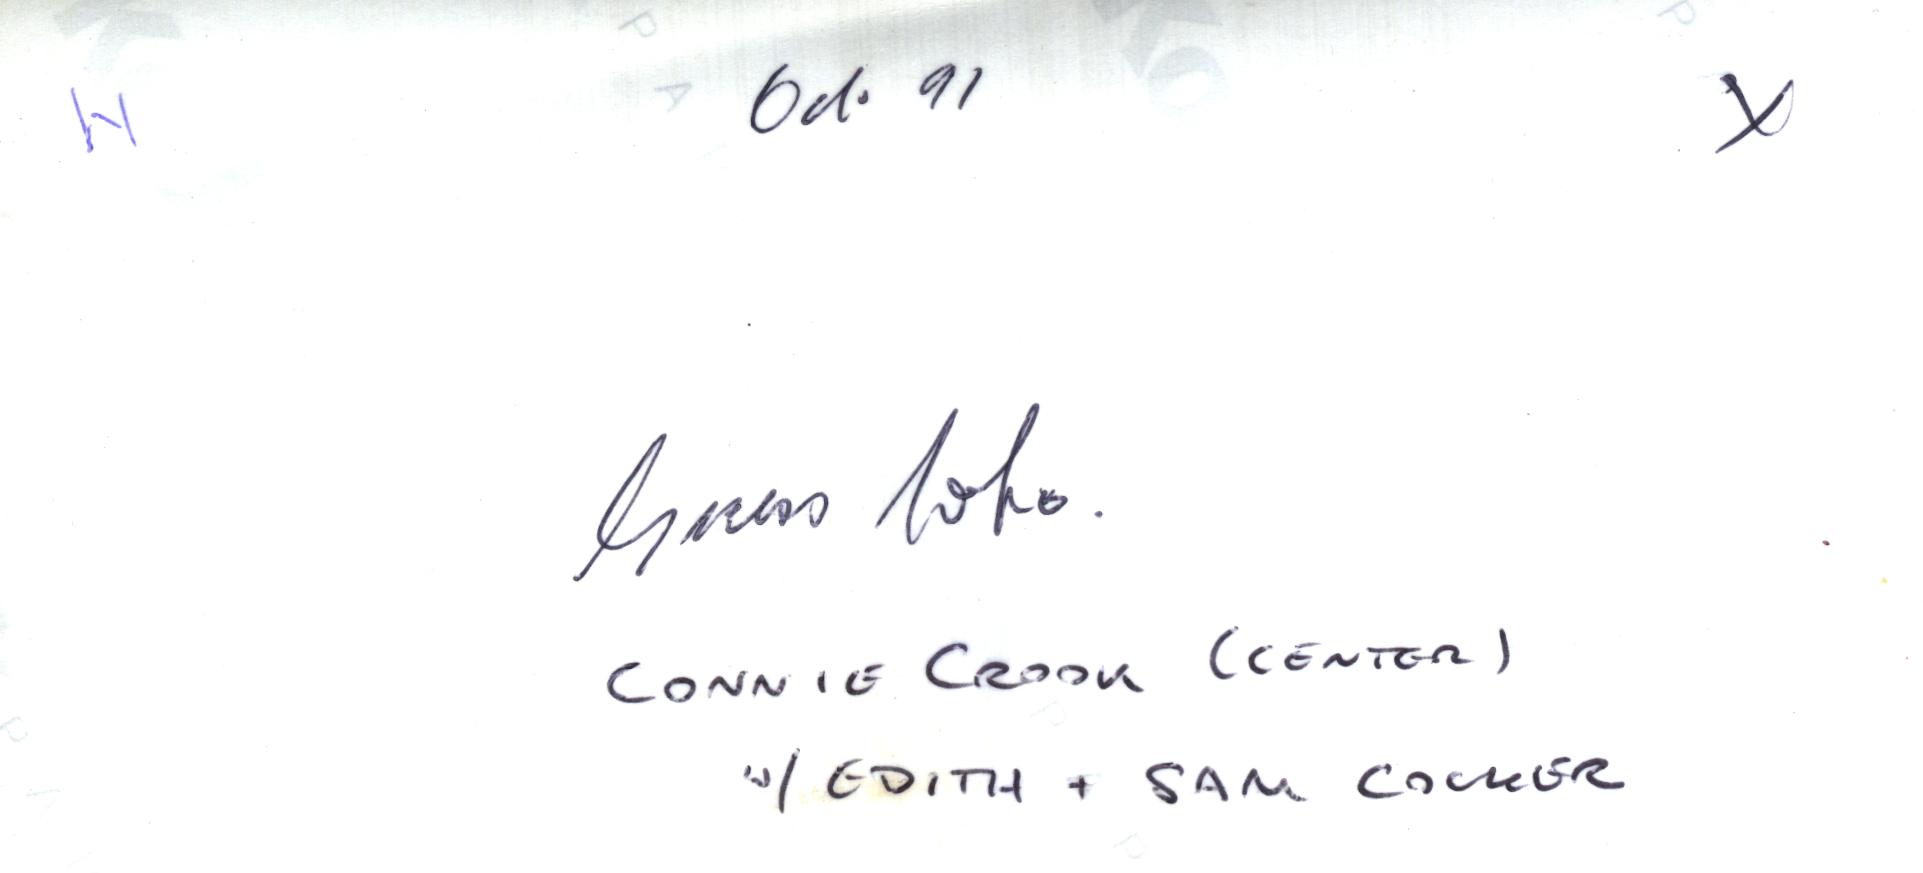 N Oct. 91 X
Guess who.
CONNIE CROOK (CENTER)
w/ EDITH + SAM COCKER